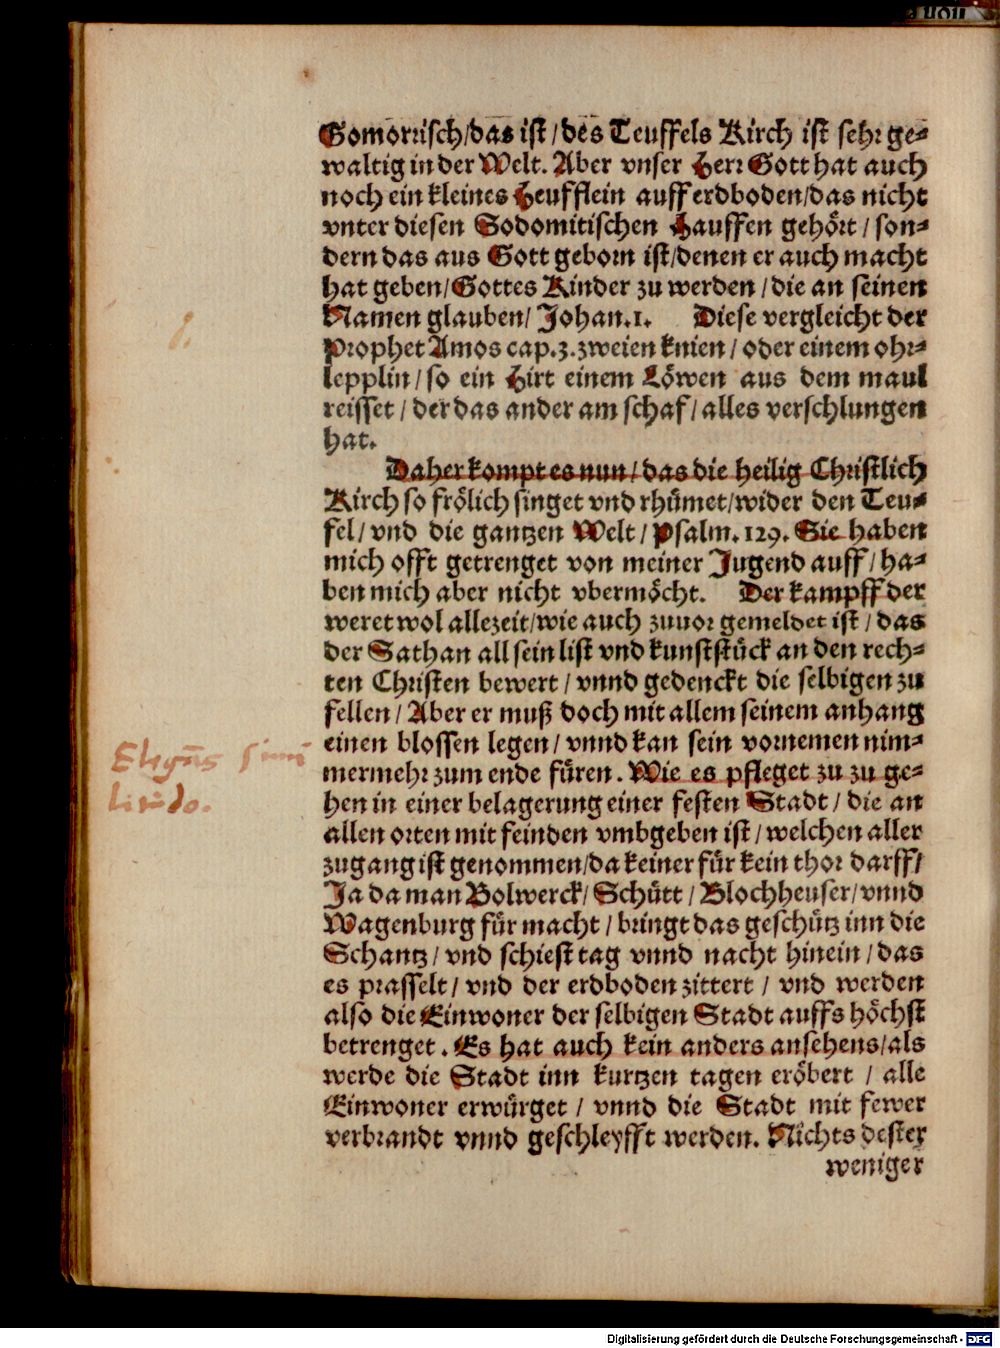 Gomorrisch/das ist/des Teuffels Kirch ist sehr ge⸗
waltig in der Welt. Aber vnser Herr Gott hat auch
noch ein kleines Heufflein auff erdboden/das nicht
vnter diesen Sodomitischen Hauffen gehört/son⸗
dern das aus Gott geborn ist/denen er auch macht
hat geben/Gottes Kinder zu werden/die an seinen
Namen glauben/Johan.1. Diese vergleicht der
Prophet Amos cap.3.zweien knien/oder einem ohr⸗
lepplin/so ein Hirt einem Löwen aus dem maul
reisset/der das ander am schaf/alles verschlungen
hat.
Daher kompt es nun/das die heilig Christlich
Kirch so frölich singet vnd rhümet/wider den Teu⸗
fel/vnd die gantzen Welt/Psalm.129. Sie haben
mich offt getrenget von meiner Jugend auff/ha⸗
ben mich aber nicht vbermöcht. Der kampff der
weret wol allezeit/wie auch zuuor gemeldet ist/das
der Sathan all sein list vnd kunststück an den rech⸗
ten Christen bewert/vnnd gedenckt die selbigen zu
fellen/Aber er muß doch mit allem seinem anhang
einen blossen legen/vnnd kan sein vornemen nim⸗
mermehr zum ende füren. Wie es pfleget zu zu ge⸗
Elegās simi
litudo.
hen in einer belagerung einer festen Stadt/die an
allen orten mit feinden vmbgeben ist/welchen aller
zugang ist genommen/da keiner für kein thor darff/
Ja da man Bolwerck/Schütt/Blochheuser/vnnd
Wagenburg für macht/bringt das geschütz inn die
Schantz/vnd schiest tag vnnd nacht hinein/das
es prasselt/vnd der erdboden zittert/vnd werden
also die Einwoner der selbigen Stadt auffs höchst
betrenget. Es hat auch kein anders ansehens/als
werde die Stadt inn kurtzen tagen eröbert/alle
Einwoner erwürget/vnnd die Stadt mit fewer
verbrandt vnnd geschleyfft werden. Nichts dester
weniger
Digitalisierung gefördert durch die Deutsche Forschungsgemeinschaft - DFG